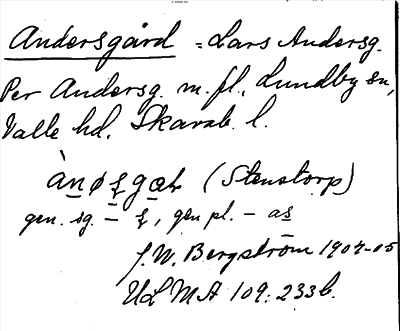 Andersgård = Lars Andersg.
Per Andersg. m. fl., Lundby sn,
Valle hd, Skarab. l.
(Stenstorp)
gen. sg. –, gen pl. – as
J. W. Bergström 1904-05
ULMA 109:233b.